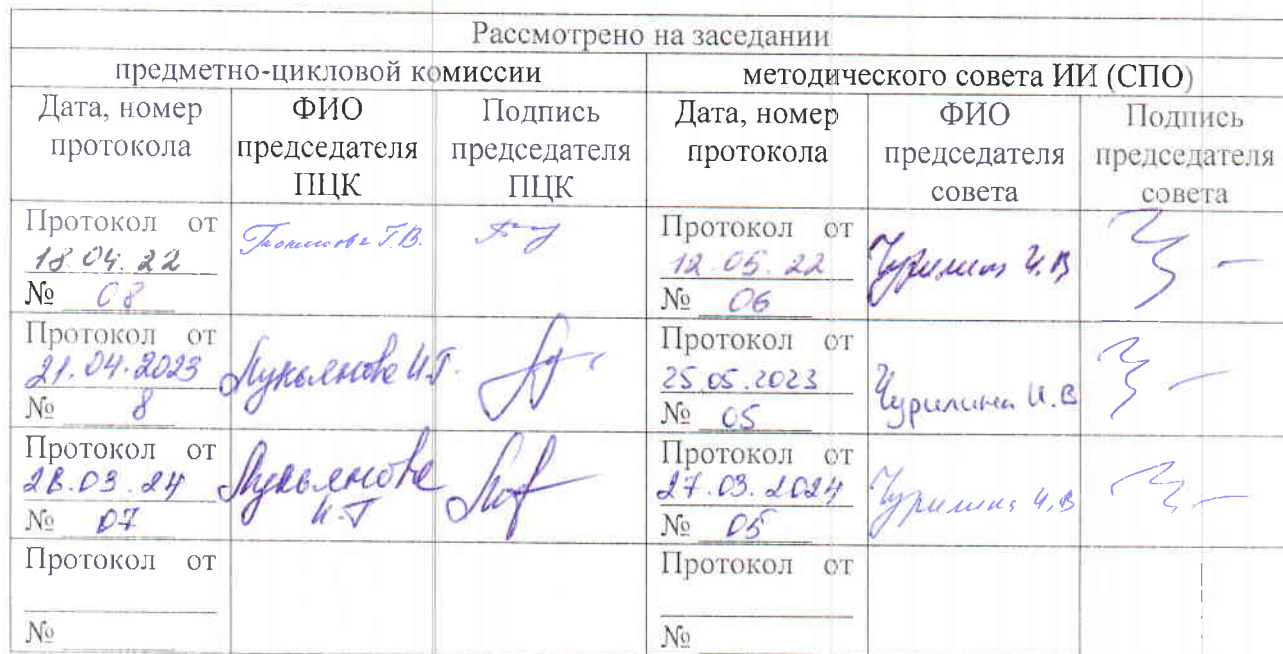 Рассмотрено на заседании
предметно-цикловой комиссии
методического совета ИИ (СПО)
Дата, номер протокола
ФИО председателя ПЦК
Подпись председателя ПЦК
Дата, номер протокола
ФИО председателя совета
Подпись председателя совета
Протокол от
18.04.22
№ 08
Т.В.
Протокол от
12.05.22
№ 06
Чурилина И.В
Протокол от
21.04.2023
№ 8
Лукьянова И.Г.
Протокол от
25.05.2023
№ 05
Чурилина И.В
Протокол от
№ 07
Лукьянова
И.Г
Протокол от
27.03.2024
№ 05
Чурилина И.В
Протокол от
№
Протокол от
№